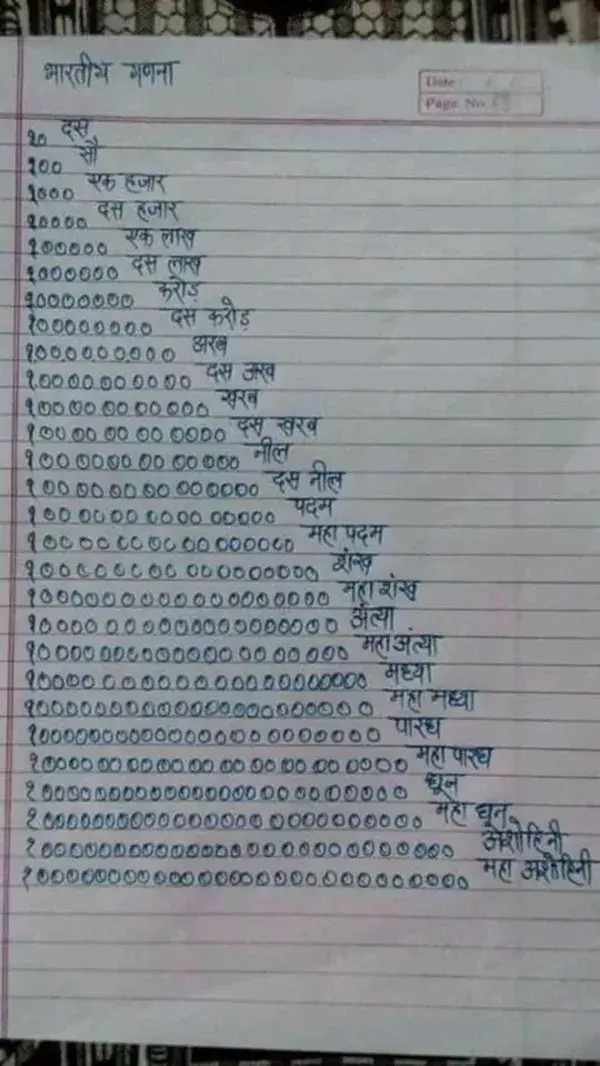 भारतीय गणना
Date: / /
Page No.
१० दस
१०० सौ
१००० एक हजार
१०००० दस हजार
१००००० एक लाख
१०००००० दस लाख
१००००००० करोड़
१०००००००० दस करोड़
१००००००००० अरब
१०००००००००० दस अरब
१००००००००००० खरब
१०००००००००००० दस खरब
१००००००००००००० नील
१०००००००००००००० दस नील
१००००००००००००००० पदम
१०००००००००००००००० महा पदम
१००००००००००००००००० शंख
१०००००००००००००००००० महा शंख
१००००००००००००००००००० अंत्या
१०००००००००००००००००००० महा अंत्या
१००००००००००००००००००००० मध्या
१०००००००००००००००००००००० महा मध्या
१००००००००००००००००००००००० पारध
१०००००००००००००००००००००००० महा पारध
१००००००००००००००००००००००००० धून
१०००००००००००००००००००००००००० महा धून
१००००००००००००००००००००००००००० अशोहिनी
१०००००००००००००००००००००००००००० महा अशोहिनी